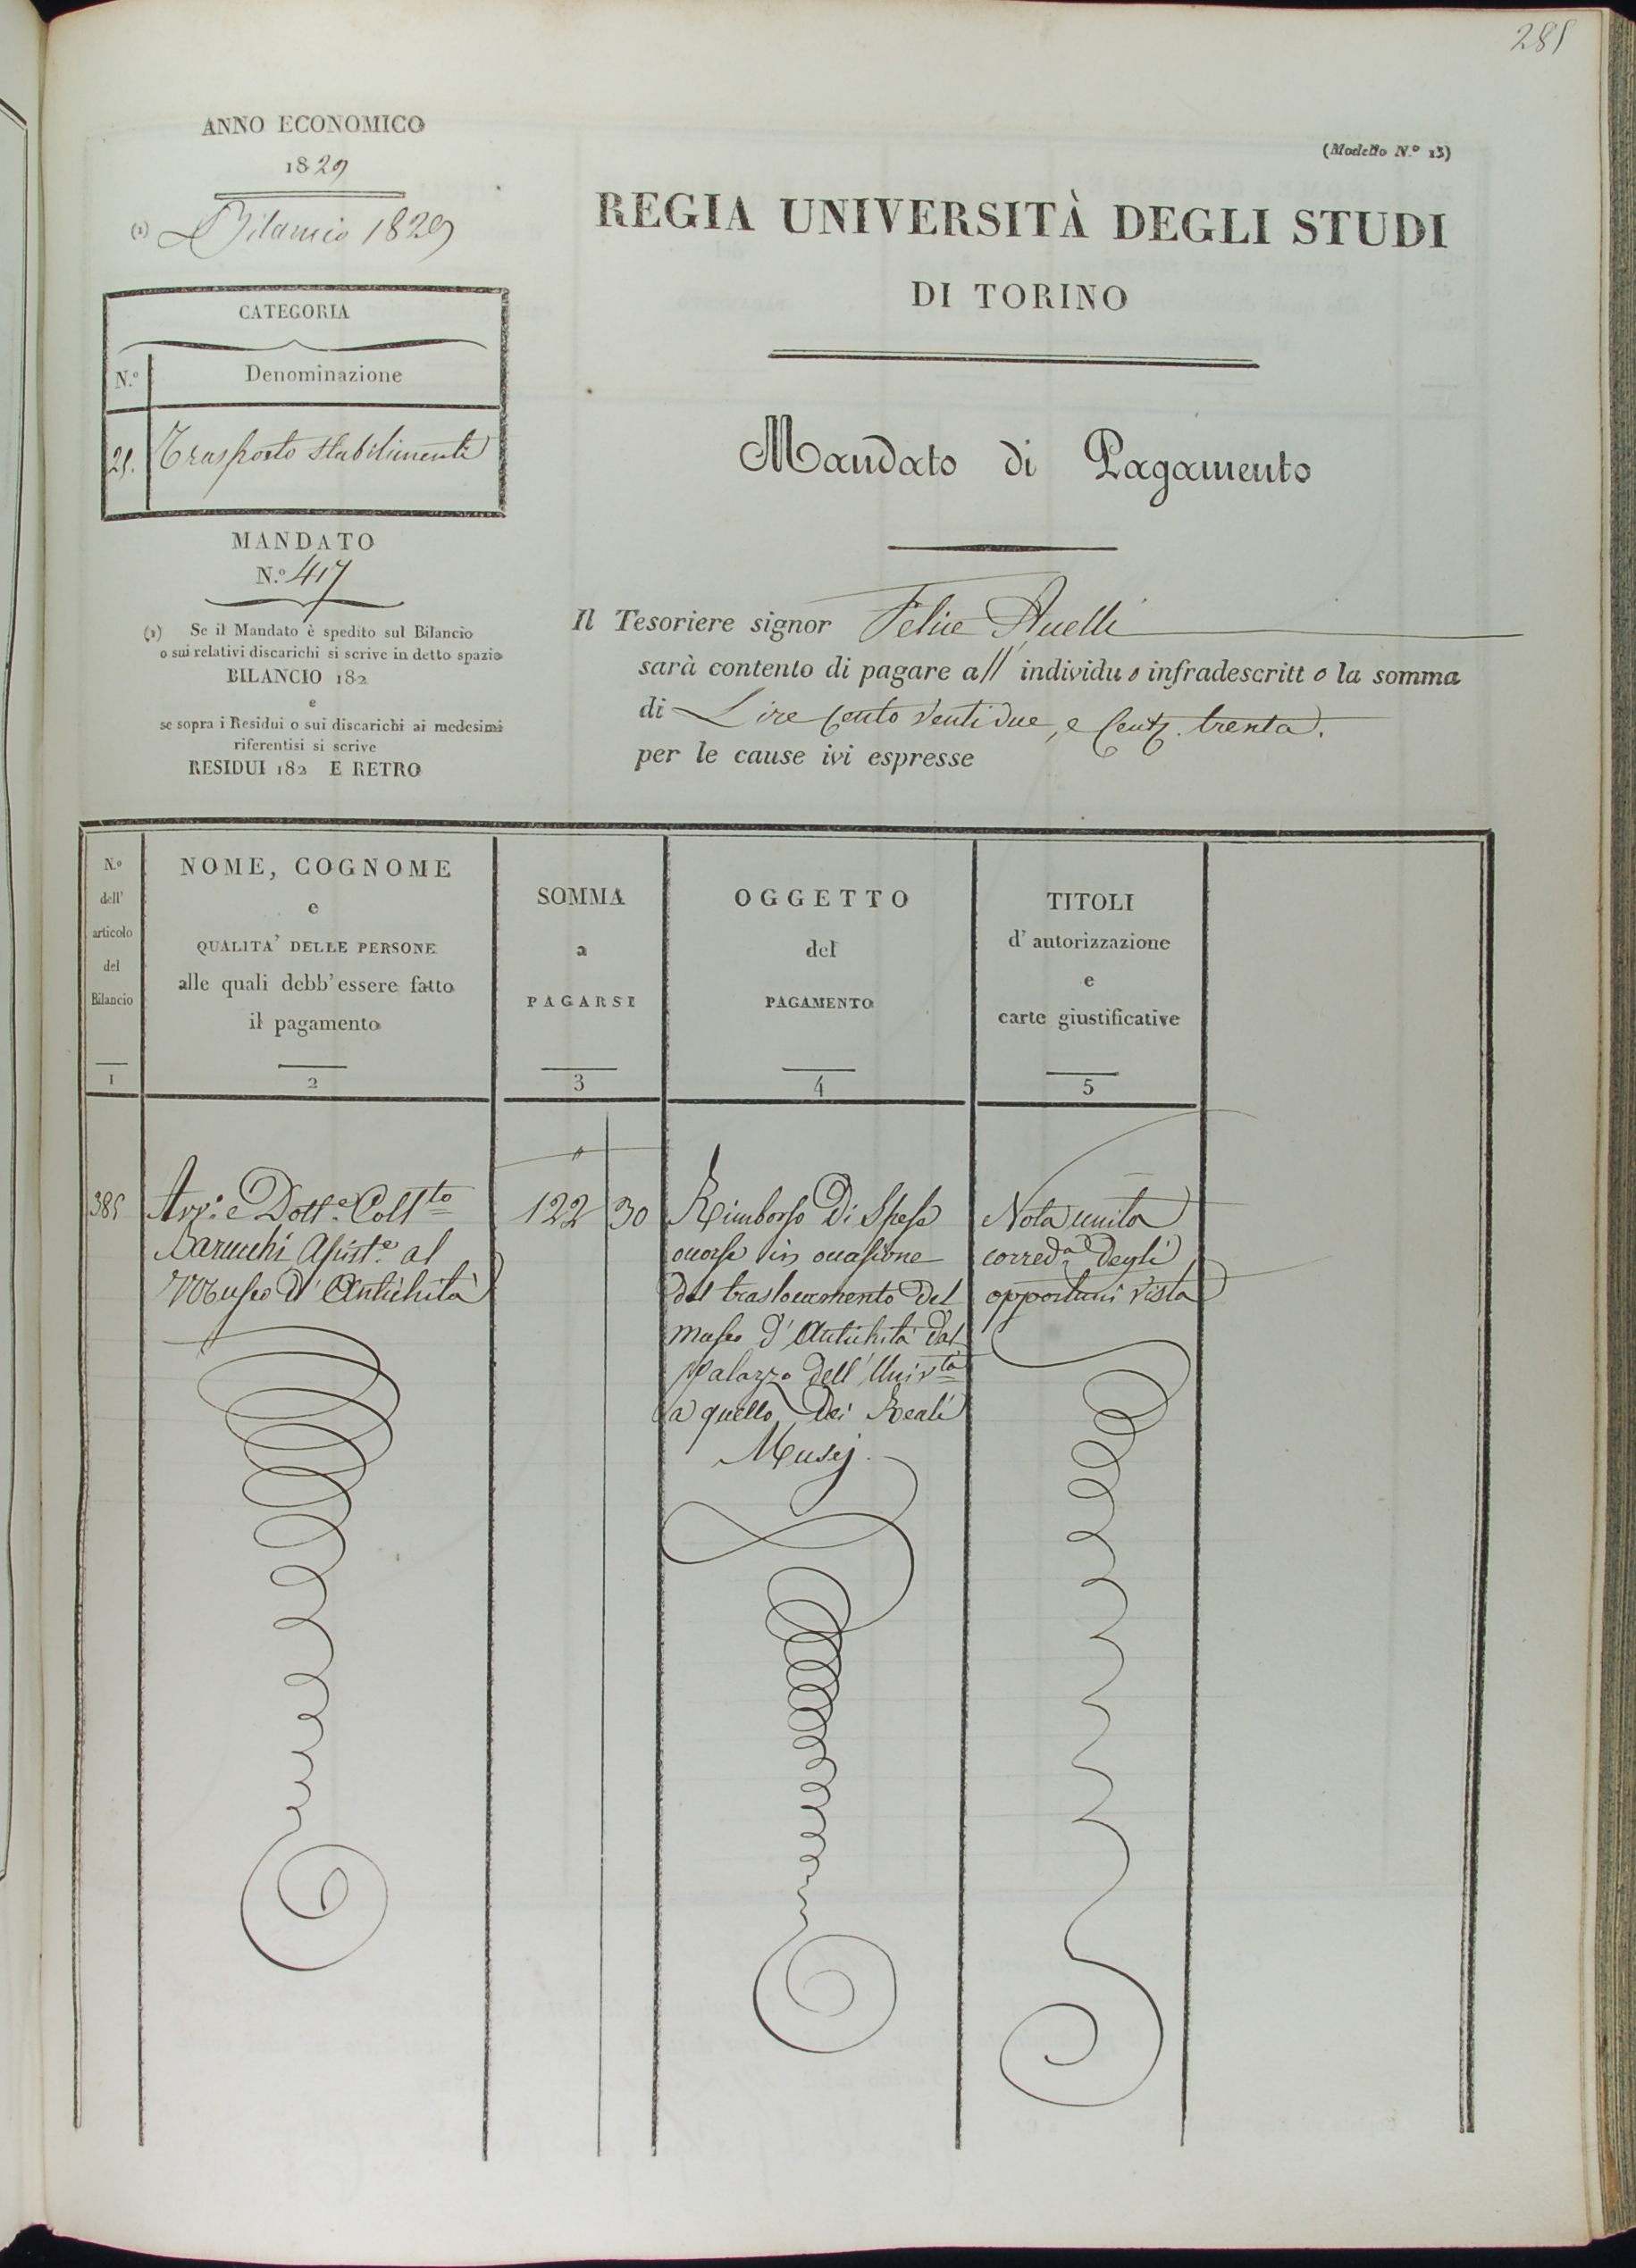 285
ANNO ECONOMICO
1829
(1) Bilancio 1829
(Modello N.º 13)
REGIA UNIVERSITÀ DEGLI STUDI
DI TORINO
CATEGORIA
N.º Denominazione
25. Trasporto Stabilimenti
Mandato di Pagamento
MANDATO
N.º 417
(1) Se il Mandato è spedito sul Bilancio
o sui relativi discarichi si scrive in detto spazio
BILANCIO 182
e
se sopra i Residui o sui discarichi ai medesimi
riferentisi si scrive
RESIDUI 182 E RETRO
Il Tesoriere signor Felice
sarà contento di pagare all' individuo infradescritto la somma
di Lire Cento Ventidue, e Cent. trenta.
per le cause ivi espresse
N.º
dell'
articolo
del
Bilancio
1
NOME, COGNOME
e
QUALITA' DELLE PERSONE
alle quali debb' essere fatto
il pagamento
2
SOMMA
a
PAGARSI
3
OGGETTO
del
PAGAMENTO
4
TITOLI
d' autorizzazione
e
carte giustificative
5
385
Avv. e Dott.e Coll.to
Barucchi Assist.e al
Museo d' Antichità
122 30
Rimborso di Spese
occorse in occasione
del traslocamento del
museo d' Antichità dal
Palazzo dell' Univ.tà
a quello dei Reali
Musej.
Nota unita
corred.a degli
opportuni vista